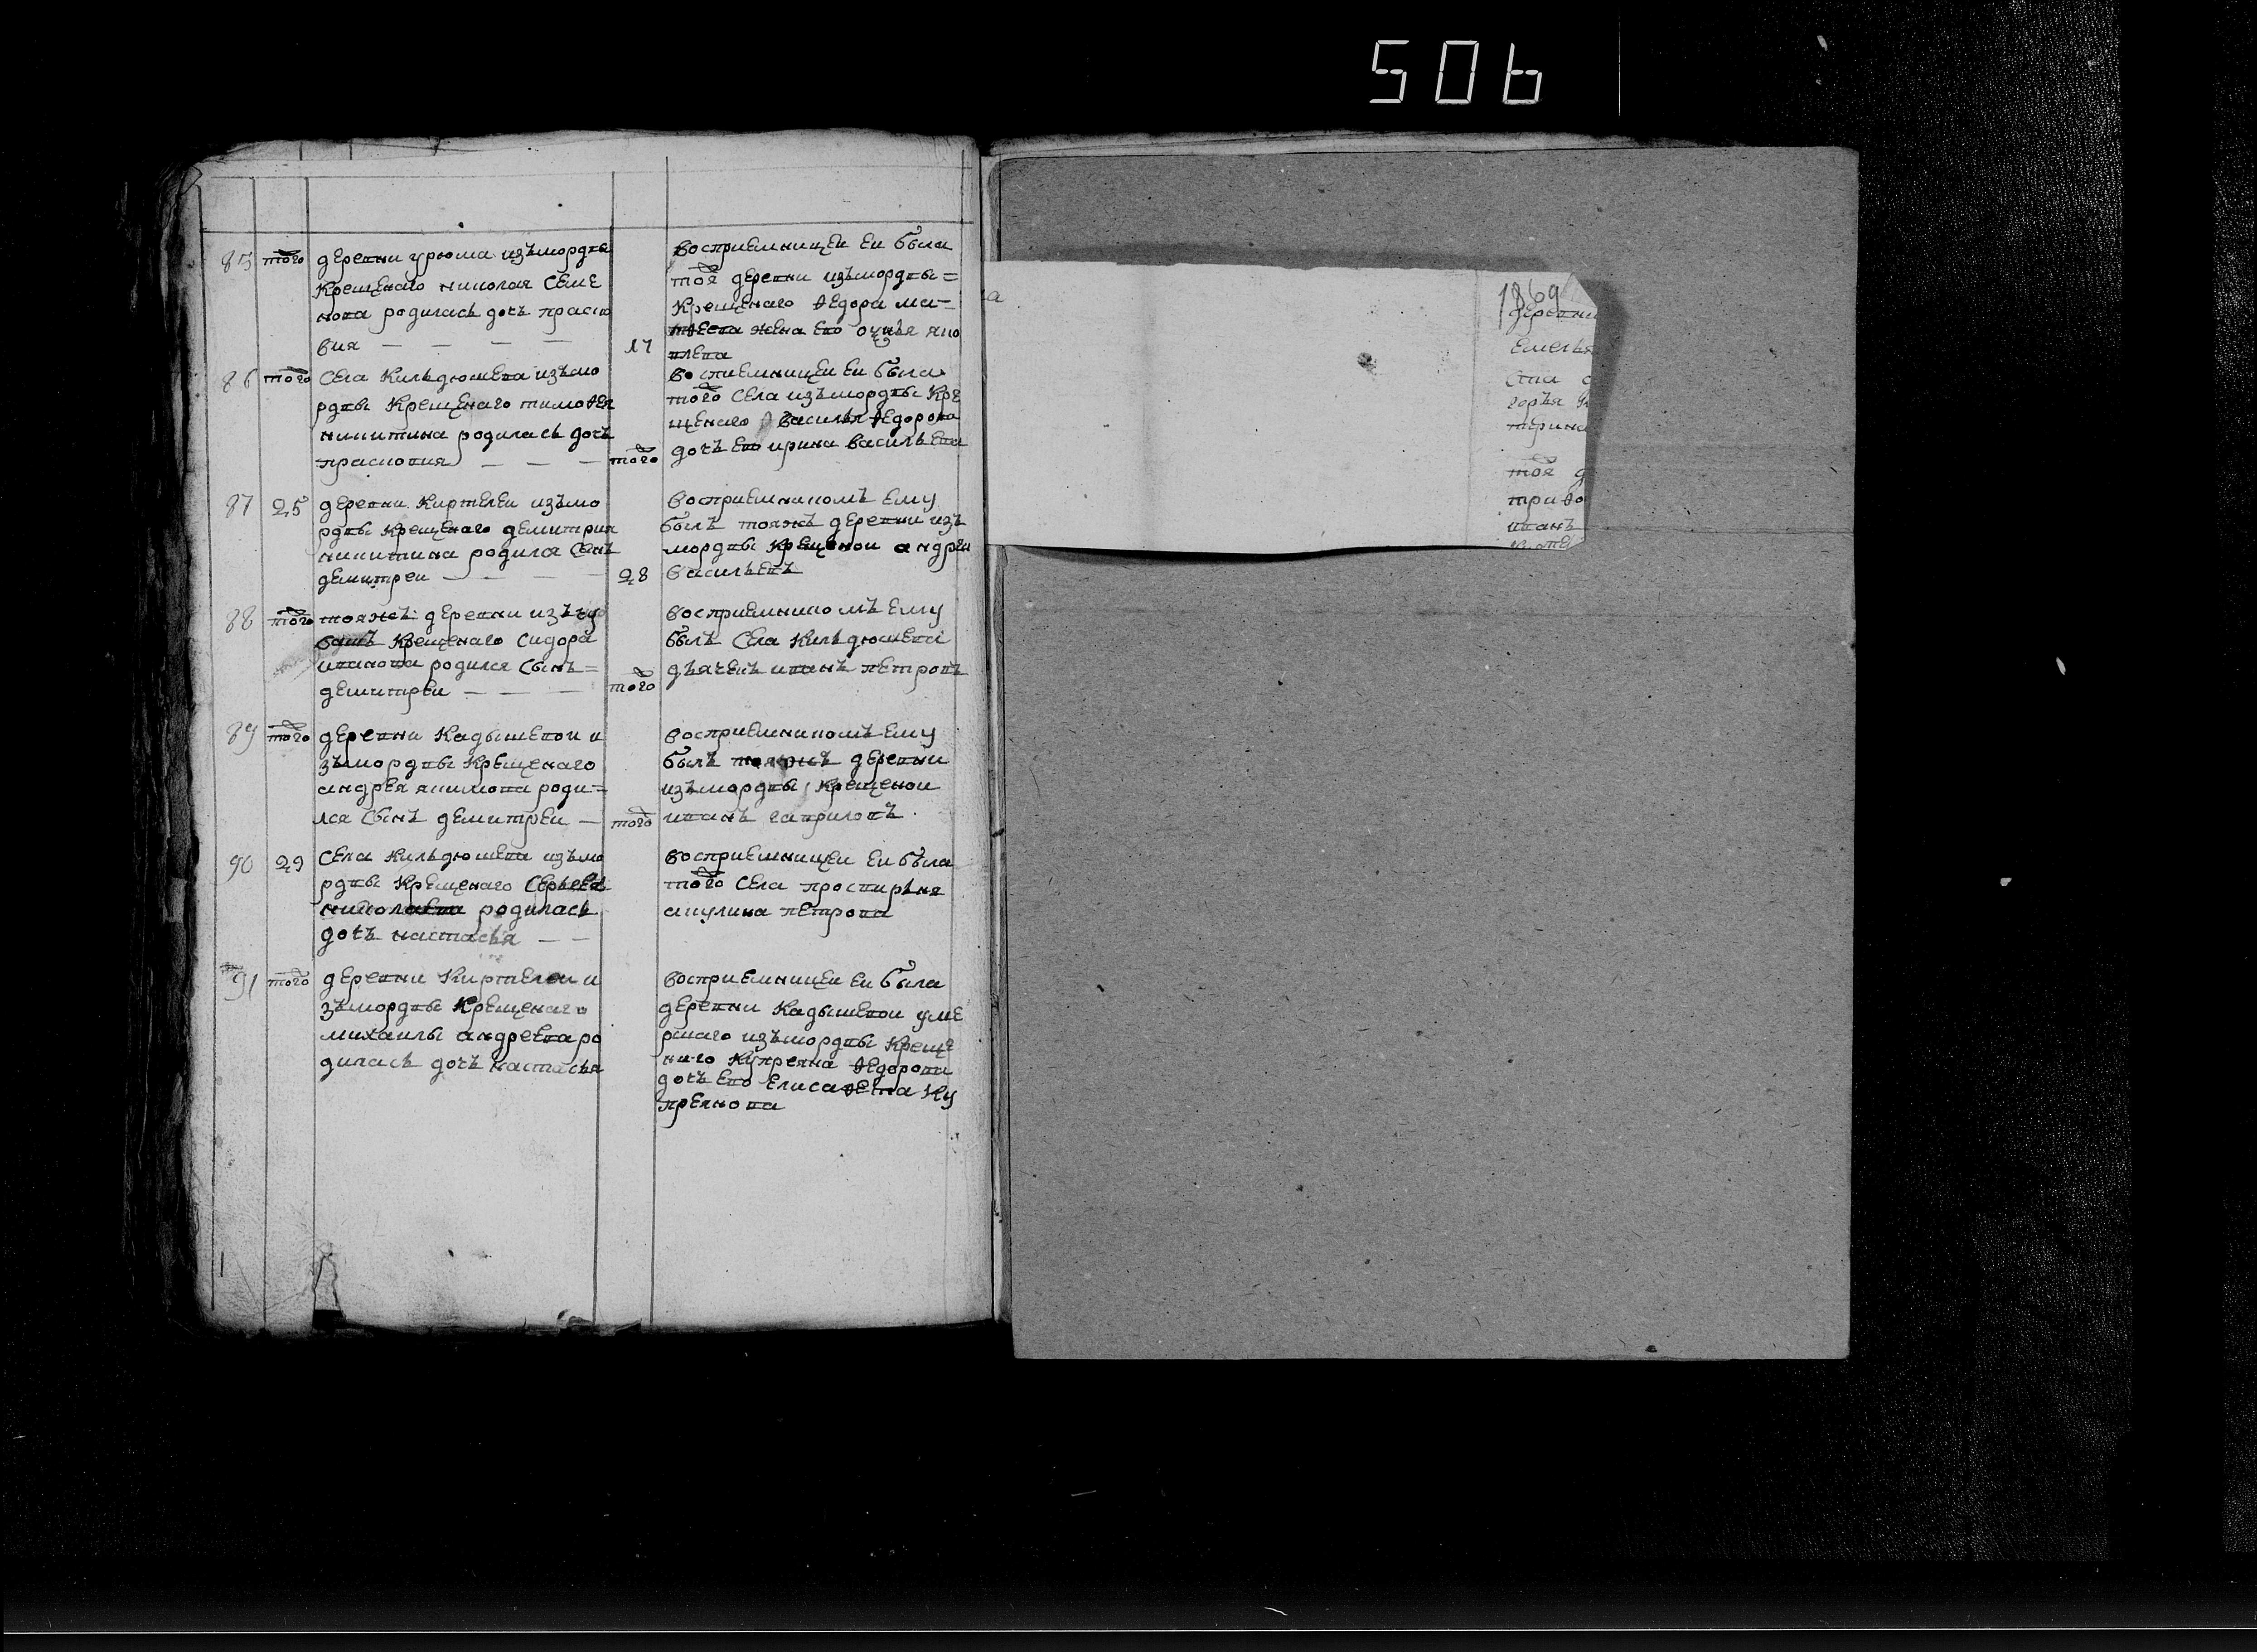 506
85 того деревни урюма изъмордвы
крещенаго николая семе
нова родилась дочь праско
вия — — — — 17
восприемницеи еи была
тоя деревни изъмордвы =
крещенаго ѳедора ма=
твеева жена ево
86 того села кильдюшева изъмо
рдвы крещенаго тимоѳея
никитина родилась дочь
прасковия — — — того
восприемницеи еи была
того села изъмордвы кре
щенаго василья ѳедорова
дочь ево ирина васильева
87 25 деревни киртелеи изъмо
рдвы крещенаго демитрия
никитина родился сынъ
демитреи — — — — 28
восприемникомъ ему
былъ тояжъ деревни изъ
мордвы крещенои андреи
васильевъ
88 того тояжъ деревни изъчу
вашъ крещенаго сидора
иванова родился сынъ =
демитреи — — — того
восприемникомъ ему
былъ села кильдюшева
дьячекъ иванъ петровъ
89 того деревни кадышевои и
зъмордвы крещенаго
андрея якимова роди=
лся сынъ демитреи — того
восприемникомъ ему
былъ деревни
изъмордвы крещенои
иванъ гавриловъ
90 29 села кильдюшева изъмо
рдвы крещенаго сергея
николаева родилась
дочь настасья — —
восприемницеи еи была
того села просвирьня
акулина петрова
91 того деревни киртелеи и
зъмордвы крещенаго
михаилы андреева ро
дилась дочь настасья
восприемницеи еи была
деревни кадышевои уме
ршаго изъмордвы креще
наго купреяна ѳедорова
дочь ево елисаѳета ку
преянова
1869
деревни
емелья
тоя д
иванъ